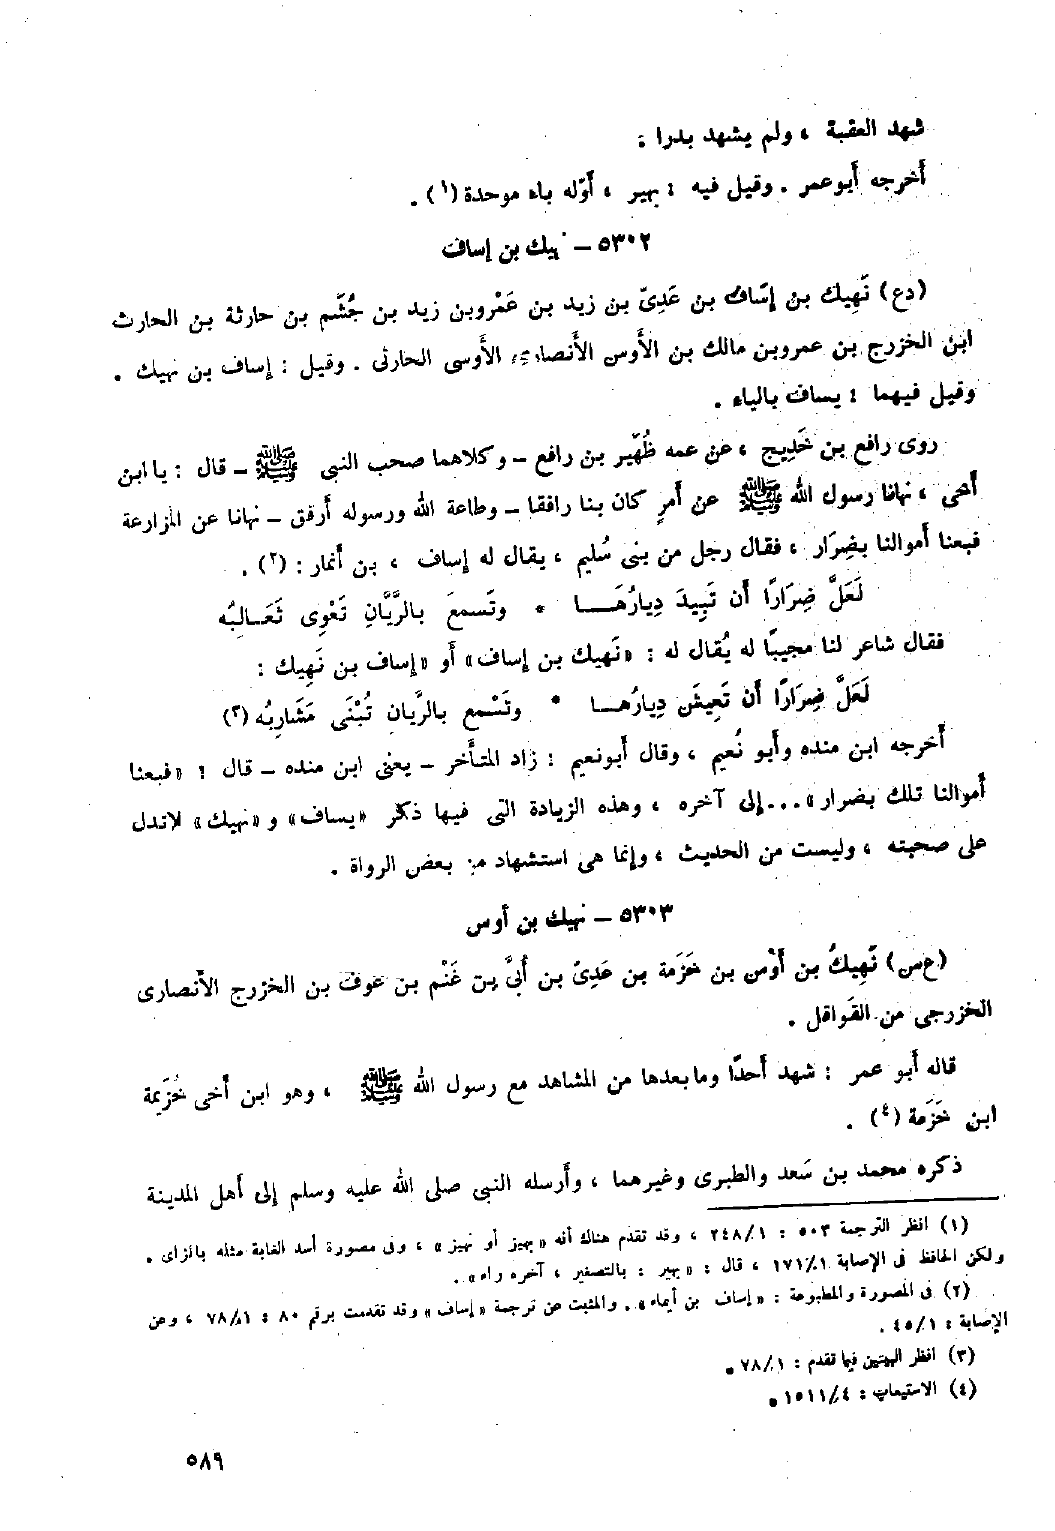 شهد العقبة ، ولم يشهد بدرا :
أخرجه أبو عمر . وقيل فيه : بهير ، أوّله باء موحدة (١) .
٥٣٠٢ – نهيك بن إساف
(دع) نَهِيك بن إسَاف بن عَدِىّ بن زيد بن عَمْرو بن زيد بن جُشَم بن حارثة بن الحارث
ابن الخزرج بن عمرو بن مالك بن الأوس الأنصارى الأوسى الحارثى . وقيل : إساف بن نهيك .
وقيل فيهما : يساف بالياء .
روى رافع بن خَدِيج ، عن عمه ظُهَير بن رافع – وكلاهما صحب النبى ﷺ – قال : يا ابن
أخى ، نهانا رسول الله ﷺ عن أمرٍ كان بنا رافقا – وطاعة الله ورسوله أرفق – نهانا عن المزارعة
فبعنا أموالنا بضِرَار ، فقال رجل من بنى سُليم ، يقال له إساف ، بن أنمار : (٢) .
لَعَلَّ ضِرَارًا أن تَبِيدَ دِيارُهَـــا * وتَسمعَ بالرَّيَّانِ تَعْوِى ثَعَـالِبُه
فقال شاعر لنا مجيبًا له يُقال له : «نَهيك بن إساف» أو «إساف بن نَهِيك :
لَعَلَّ ضِرَارًا أن تَعِيشَ دِيارُهـــا * وتَسْمع بالرَّيانِ تُبْنَى مَشَارِبُه (٣)
أخرجه ابن منده وأبو نُعيم ، وقال أبو نعيم : زاد المتأخر – يعنى ابن منده – قال : «فبعنا
أموالنا تلك بضرار» ... إلى آخره ، وهذه الزيادة التى فيها ذكر «يساف» و«نهيك» لا تدل
على صحبته ، وليست من الحديث ، وإنما هى استشهاد من بعض الرواة .
٥٣٠٣ – نهيك بن أوس
(ع س) نَهِيكُ بن أوْس بن خَزَمة بن عَدِىّ بن أُبَىّ بن غَنْم بن عَوف بن الخزرج الأنصارى
الخزرجى من القَواقل .
قاله أبو عمر : شهد أحدًا وما بعدها من المشاهد مع رسول الله ﷺ ، وهو ابن أخى خُزَيمة
ابن خَزَمة (٤) .
ذكره محمد بن سَعد والطبرى وغيرهما ، وأرسله النبى صلى الله عليه وسلم إلى أهل المدينة
(١) انظر الترجمة ٥٠٣ : ٢٤٨/١ ، وقد تقدم هناك أنه «بهيز أو نهيز» ، وفى مصورة أسد الغابة مثله بالزاى .
ولكن الحافظ فى الإصابة ١٧١/١ ، قال : «بهير : بالتصغير ، آخره راء» .
(٢) فى المصورة والمطبوعة : «إساف بن أيماء» . والمثبت عن ترجمة «إساف» وقد تقدمت برقم ٨٠ : ٧٨/١ ، وعن
الإصابة : ٤٥/١ .
(٣) انظر البيتين فيما تقدم : ٧٨/١ .
(٤) الاستيعاب : ١٥١١/٤ .
٥٨٩